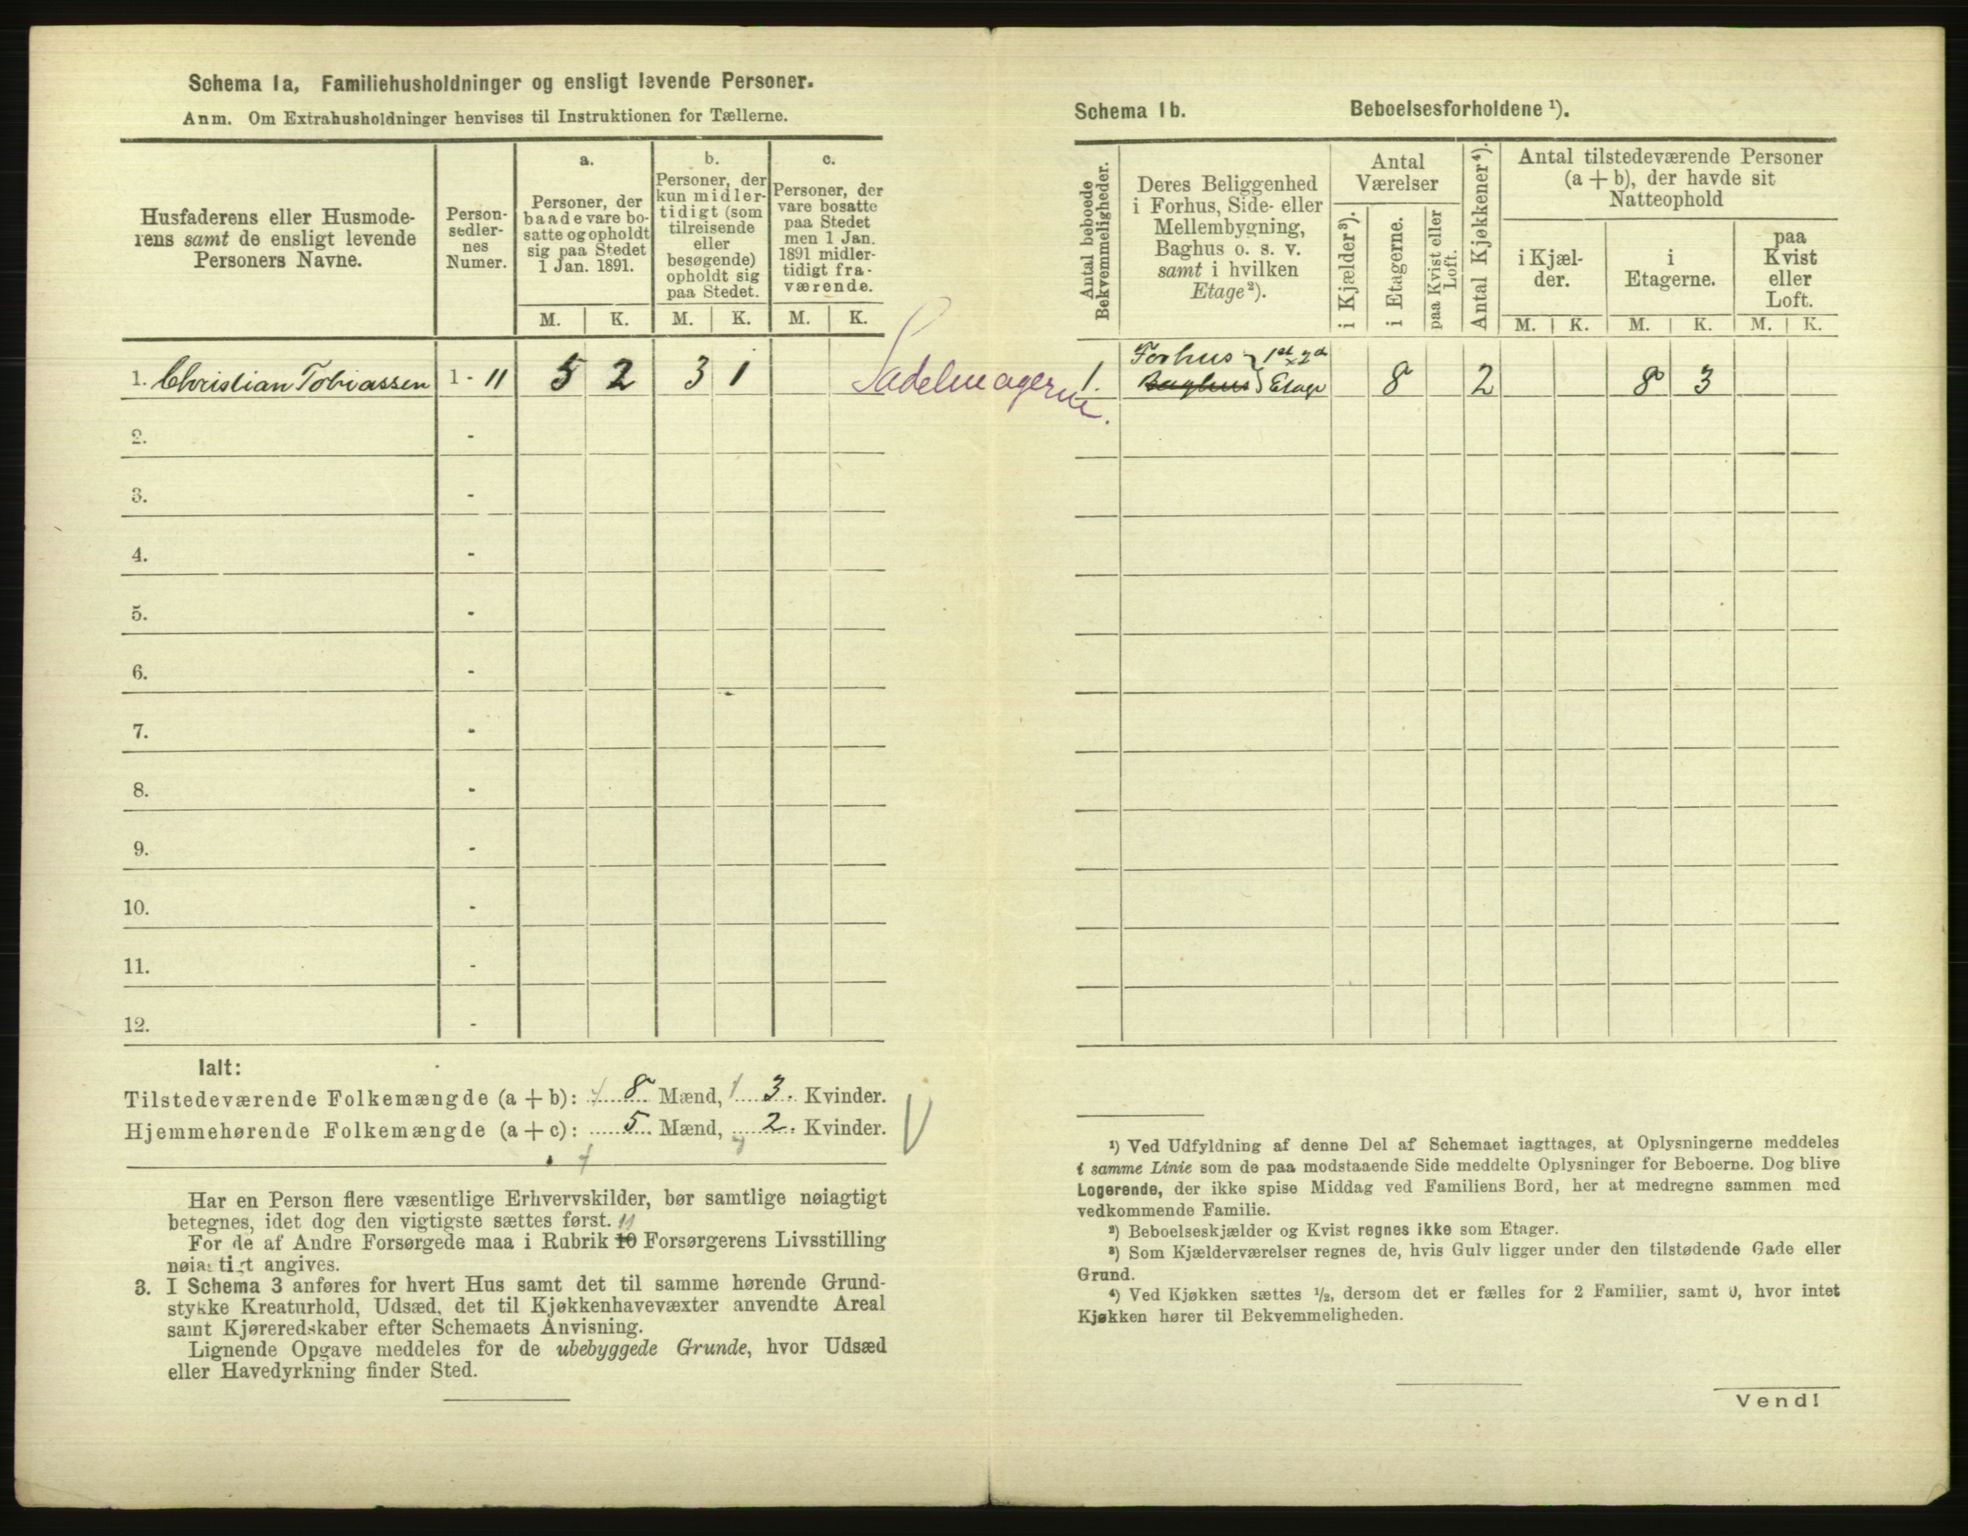 Schema 1a, Familiehusholdninger og ensligt levende Personer.
Anm. Om Extrahusholdninger henvises til Instruktionen for Tællerne.
Husfaderens eller Husmode-
rens samt de ensligt levende
Personers Navne.
Person-
sedler-
nes
Numer.
a.
Personer, der
baade vare bo-
satte og opholdt
sig paa Stedet
1 Jan. 1891.
b.
Personer, der
kun midler-
tidigt (som
tilreisende
eller
besøgende)
opholdt sig
paa Stedet.
c.
Personer, der
vare bosatte
paa Stedet
men 1 Jan.
1891 midler-
tidigt fra-
værende.
M. K. M. K. M. K.
1. Christian Tobiassen 1 - 11 5 2 3 1
Sadelmagerne.
2. -
3. -
4. -
5. -
6. -
7. -
8. -
9. -
10. -
11. -
12. -
Ialt:
Tilstedeværende Folkemængde (a + b): 8 Mænd, 3 Kvinder.
Hjemmehørende Folkemængde (a + c): 5 Mænd, 2 Kvinder.
Har en Person flere væsentlige Erhvervskilder, bør samtlige nøiagtigt
betegnes, idet dog den vigtigste sættes først. 11
For de af Andre Forsørgede maa i Rubrik 10 Forsørgerens Livsstilling
nøiagtigt angives.
3. I Schema 3 anføres for hvert Hus samt det til samme hørende Grund-
stykke Kreaturhold, Udsæd, det til Kjøkkenhavevæxter anvendte Areal
samt Kjøreredskaber efter Schemaets Anvisning.
Lignende Opgave meddeles for de ubebyggede Grunde, hvor Udsæd
eller Havedyrkning finder Sted.
Schema 1b. Beboelsesforholdene ¹).
Antal beboede
Bekvemmeligheder.
Deres Beliggenhed
i Forhus, Side- eller
Mellembygning,
Baghus o. s. v.
samt i hvilken
Etage²).
Antal
Værelser
i Kjælder³).
i Etagerne.
paa Kvist eller
Loft.
Antal Kjøkkener⁴).
Antal tilstedeværende Personer
(a + b), der havde sit
Natteophold
i Kjæl-
der.
i
Etagerne.
paa
Kvist
eller
Loft.
M. K. M. K. M. K.
Forhus 1st x 2d
1. Baghus Etage 8 2 8 3
¹) Ved Udfyldning af denne Del af Schemaet iagttages, at Oplysningerne meddeles
i samme Linie som de paa modstaaende Side meddelte Oplysninger for Beboerne. Dog blive
Logerende, der ikke spise Middag ved Familiens Bord, her at medregne sammen med
vedkommende Familie.
²) Beboelseskjælder og Kvist regnes ikke som Etager.
³) Som Kjælderværelser regnes de, hvis Gulv ligger under den tilstødende Gade eller
Grund.
⁴) Ved Kjøkken sættes ½, dersom det er fælles for 2 Familier, samt 0, hvor intet
Kjøkken hører til Bekvemmeligheden.
Vend!